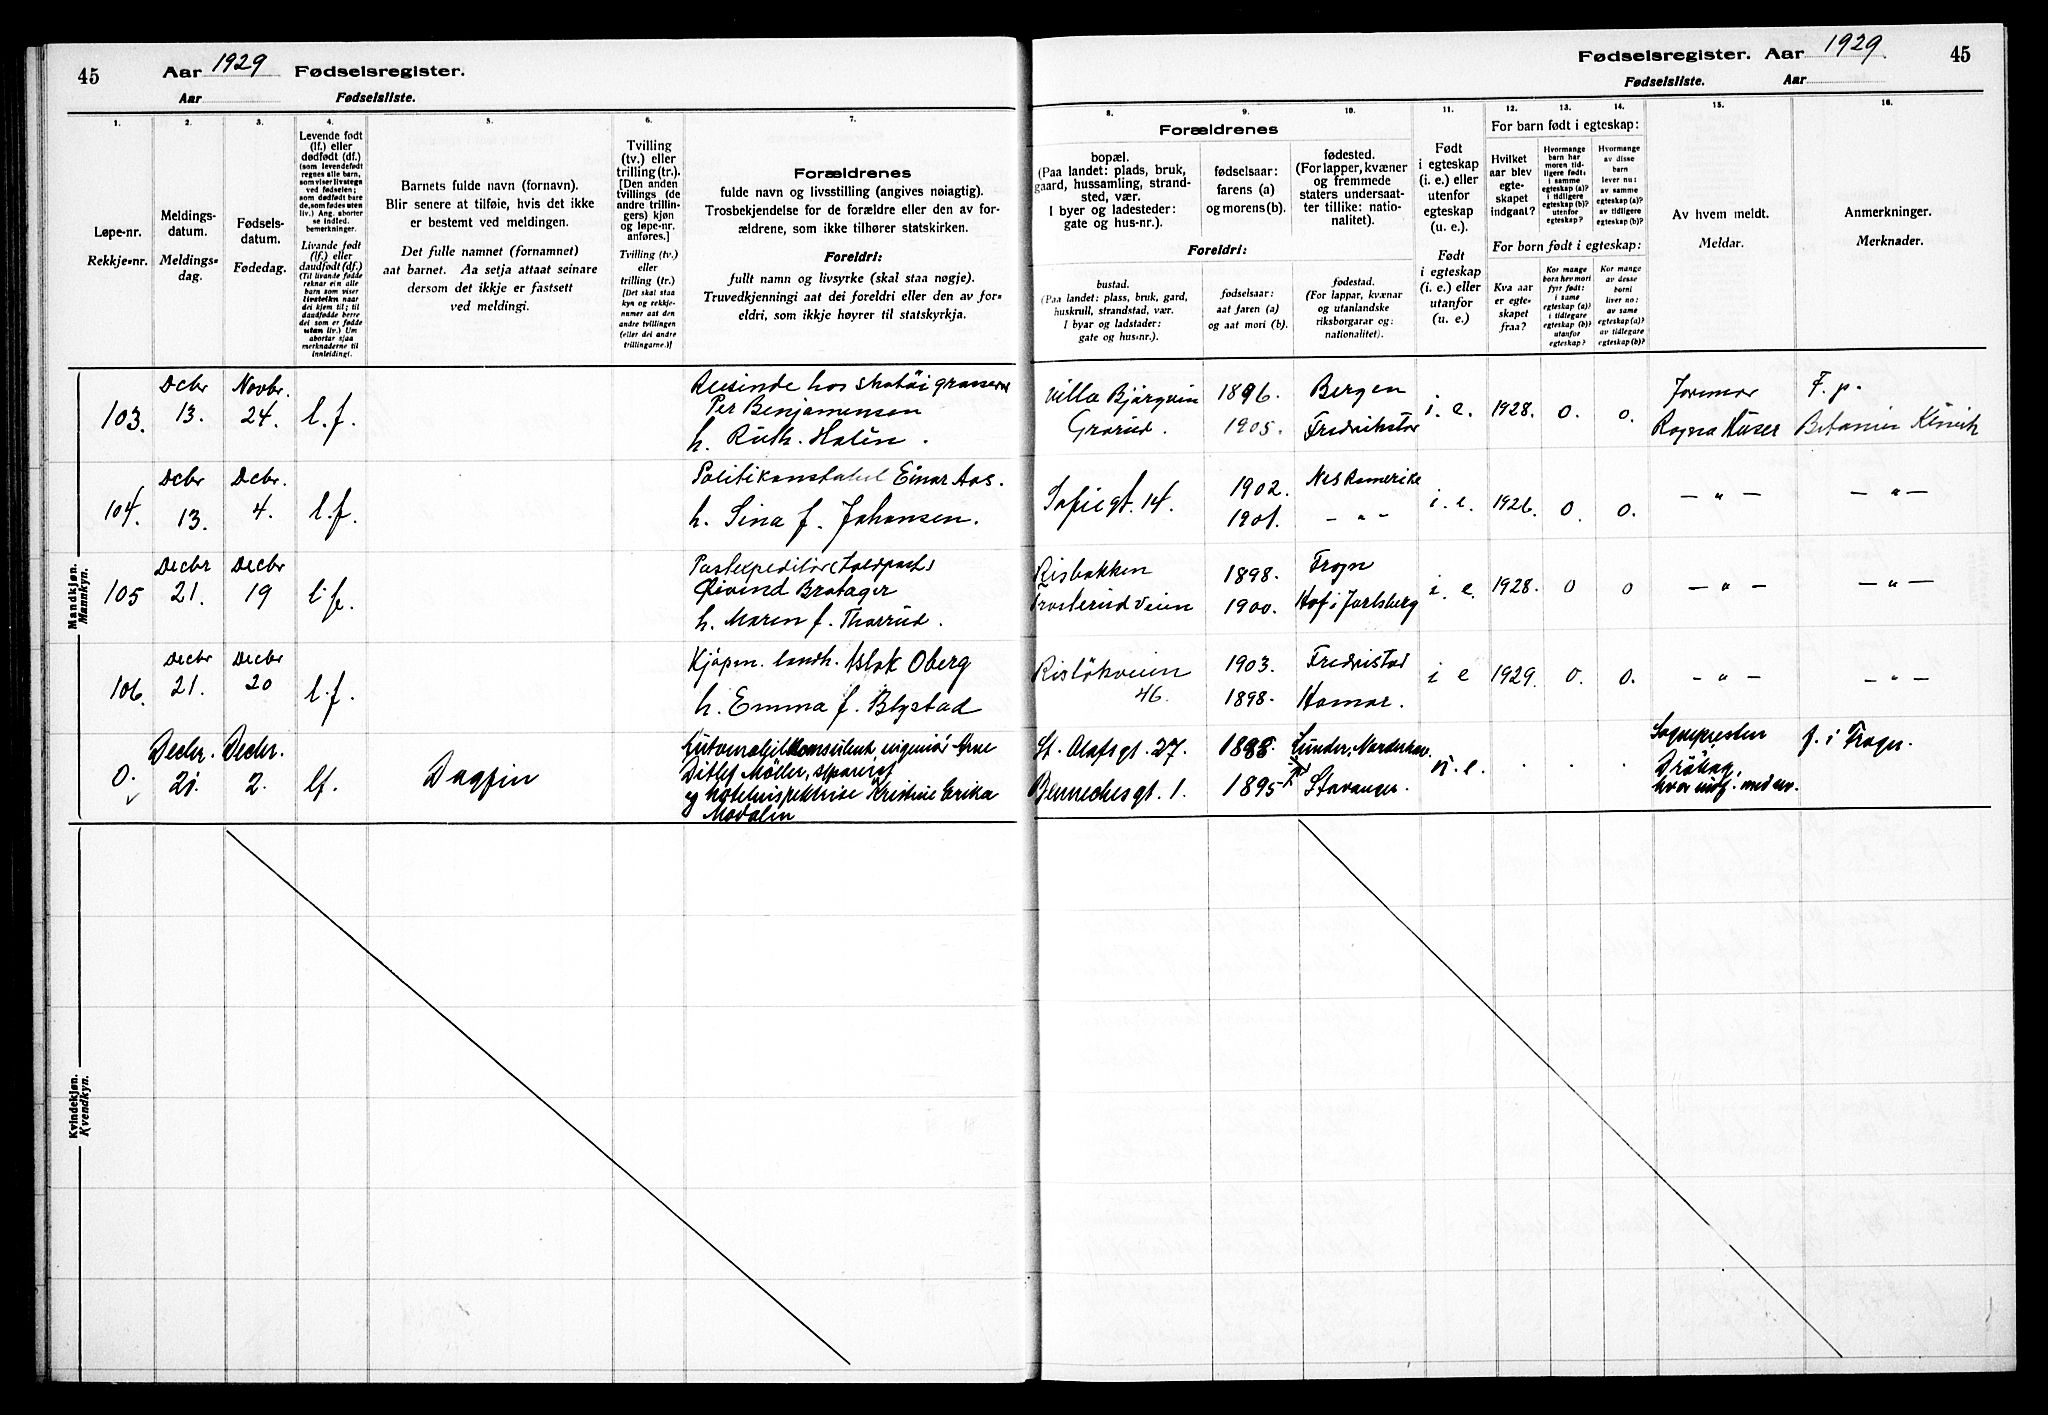 45
Aar 1929 Fødselsregister.
Aar Fødselsliste.
Fødselsregister. Aar 1929.
45
Fødselsliste. Aar
1.
Løpe-nr.
Rekkje-nr.
2.
Meldings-
datum.
Meldings-
dag.
3.
Fødsels-
datum.
Fødedag.
4.
Levende født
(lf.) eller
dødfødt (df.)
(som levendefødt
regnes alle barn,
som viser livstegn
ved fødselen;
som dødfødt bare
de, som fødes uten
liv.) Ang. aborter
se indled.
bemerkninger.
Livande født
(lf.) eller
daudfødt (df.)
(Til livande fødde
reknar ein alle
barn som viser
livsteikn naar
dei kjem til; til
daudfødde berre
dei som er fødde
utan liv.) Um
abortar sjaa
merknaderne til
innleidingi.
5.
Barnets fulde navn (fornavn).
Blir senere at tilføie, hvis det ikke
er bestemt ved meldingen.
Det fulle namnet (fornamnet)
aat barnet. Aa setja attaat seinare
dersom det ikkje er fastsett
ved meldingi.
6.
Tvilling
(tv.) eller
trilling (tr.).
[Den anden
tvillings (de
andre trillin-
gers) kjøn
og løpe-nr.
anføres.]
Tvilling (tv.)
eller
trilling (tr.)
[Det skal staa
kyn og rekkje-
numer aat den
andre tvillingen
(eller dei andre
trillingarne.)]
7.
Forældrenes
fulde navn og livsstilling (angives nøiagtig).
Trosbekjendelse for de forældre eller den av for-
ældrene, som ikke tilhører statskirken.
Foreldri:
fullt namn og livsyrke (skal staa nøgje).
Truvedkjenningi aat dei foreldri eller den av for-
eldri, som ikkje høyrer til statskyrkja.
8.
Forældrenes
bopæl.
(Paa landet: plads, bruk,
gaard, hussamling, strand-
sted, vær.
I byer og ladesteder:
gate og hus-nr.).
Foreldri:
bustad.
(Paa landet: plass, bruk, gard,
huskrull, strandstad, vær.
I byar og ladstader:
gate og hus-nr.).
9.
fødselsaar:
farens (a)
og morens (b).
fødselsaar:
aat faren (a)
og aat mori (b).
10.
fødested.
(For lapper, kvæner
og fremmede
staters undersaat-
ter tillike: natio-
nalitet).
fødestad.
(For lappar, kvænar
og utanlandske
riksborgarar og:
nationalitet).
11.
Født
i egteskap
(i. e.) eller
utenfor
egteskap
(u. e.).
Født
i egteskap
(i. e.) eller
utanfor
(u. e.).
12.
For barn født i egteskap:
Hvilket
aar blev
egte-
skapet
indgaat?
For born født i egteskap:
Kva aar
er egte-
skapet
fraa?
13.
Hvormange
barn har
moren tid-
ligere født:
i samme
egteskap (a)?
i tidligere
egteskap (b)?
utenfor
egteskap?
Kor mange
born hev mori
fyrr født:
i same
egteskap (a)?
i tidlegare
egteskap (b)?
utanfor
egteskap?
14.
Hvormange
av disse
barn
lever nu:
av samme
egteskap (a)?
av tidligere
egteskap (b)?
Kor mange
av desse
borni
liver no:
av same
egteskap (a)?
av tidlegare
egteskap (b)?
15.
Av hvem meldt.
Meldar.
16.
Anmerkninger.
Merknader.
Mandkjøn.
Mannkyn.
103.
Dcbr
13.
Novbr.
24.
l.f.
Reisende hos
Per Benjamensen
h. Ruth Halin.
Villa Bjørgvin
Grorud.
1896.
1905.
Bergen
Fredrikstad
i. e.
1928.
0.
0.
Jormor
Ragna Huser
F. p.
Betanien Klinik
104.
Dcbr
13.
Dcbr.
4.
l.f.
Politikonstabel Einar Aas.
h. Sina f. Johansen.
Sofiegt. 14.
1902.
1901.
Nes Romerike
– " –
i. e.
1926.
0.
0.
– " –
– " –
105
Decbr
21.
Decbr
19
l.f.
Postexpeditør (Toldpost)
Øivind Bratager
h. Maren f. Thorrud.
Risbakken
Trosterudveien
1898.
1900.
Frogn
Hof i Jarlsberg
i. e.
1928.
0
0
– " –
– " –
106.
Decbr
21.
Decbr
20
l.f.
Kjøpm. landh. Aslak Oberg
h. Emma f. Blystad
Risløkveien
46.
1903.
1898.
Fredristad
Hamar.
i e
1929.
0.
0.
– " –
– " –
0.
Decbr.
21.
Decbr.
2.
lf.
Dagfin
Automobilkonsulent, ingeniør Arne
Ditlef Møller, separert
og hotelinspektrise Kristine Erika
Modalin
St. Olafsgt. 27.
Bennechesgt. 1.
1888.
1895
Lunder, Norderhov.
Stavanger.
u. e.
Sognepresten
Drøbak,
hvor indf. med nr.
f. i Frogn.
Kvindekjøn.
Kvendkyn.